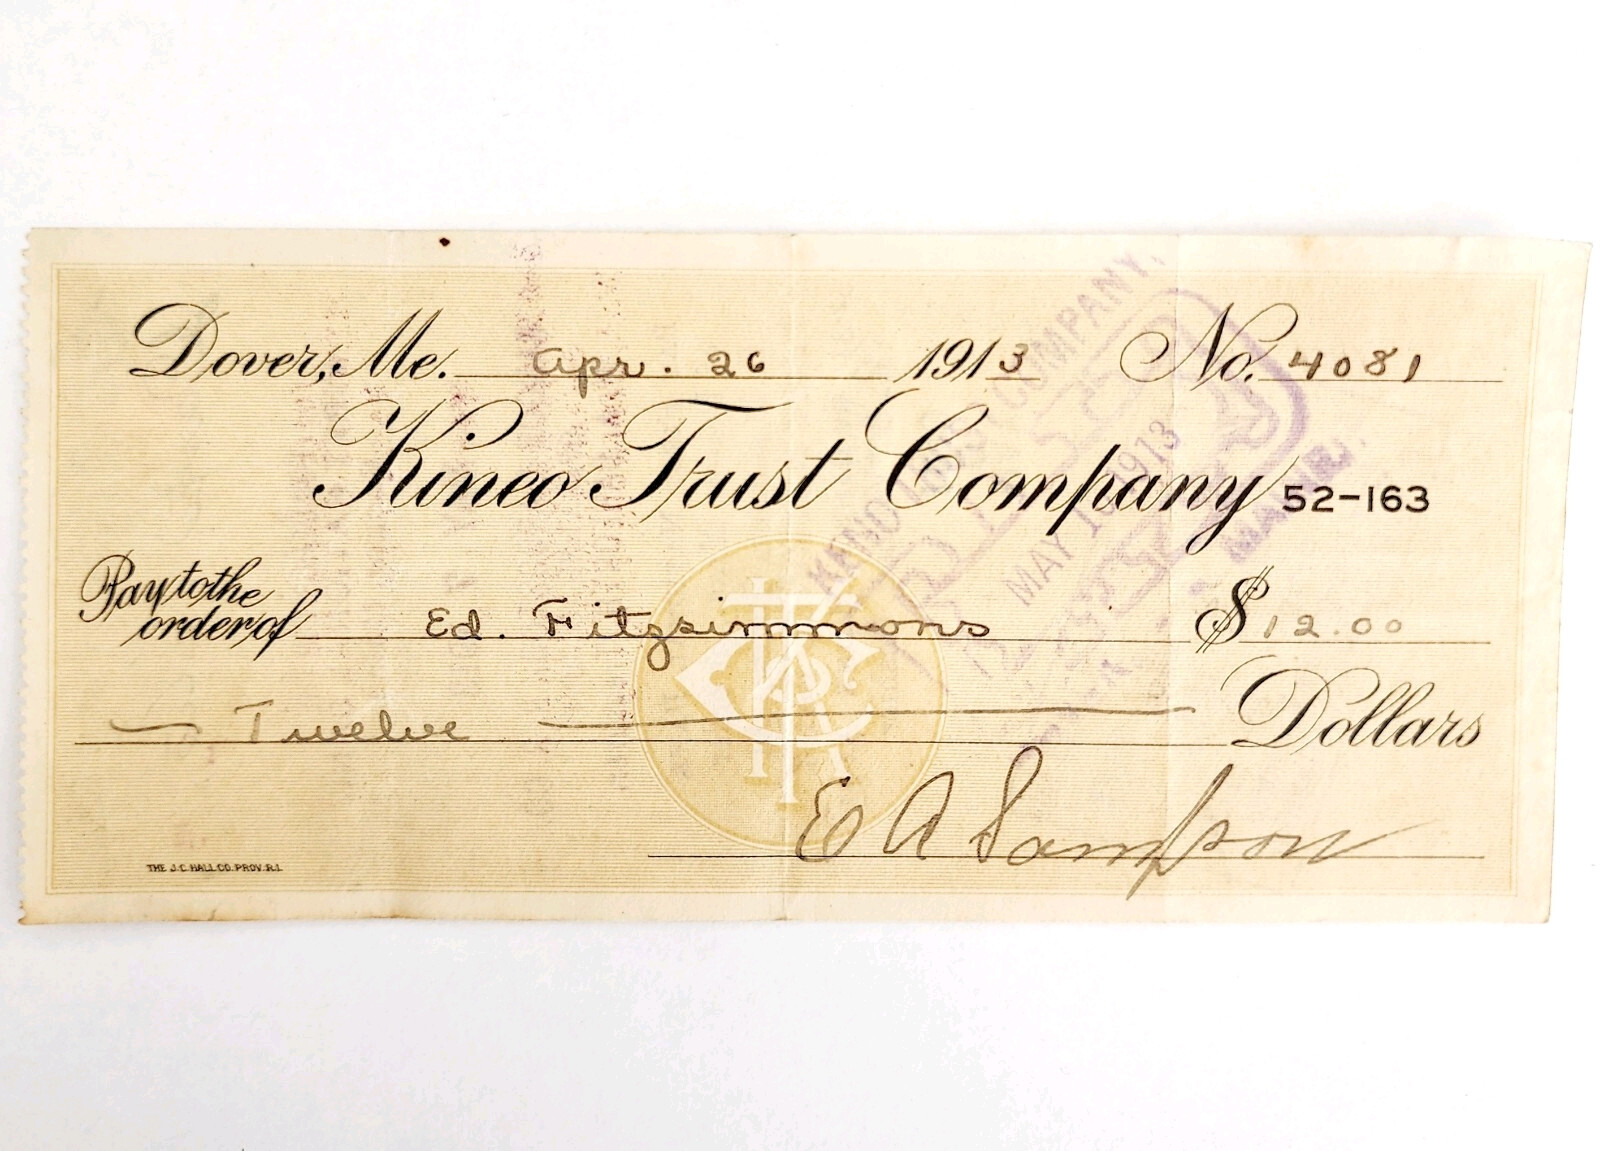 Dover, Me. Apr. 26 1913 No. 4081
Kineo Trust Company 52-163
Pay to the
order of Ed. Fitzsimmons $12.00
Twelve Dollars
E A Sampson
THE J.C. HALL CO. PROV. R.I.
KINEO TRUST COMPANY,
PAID
MAY 1 1913
MAINE.